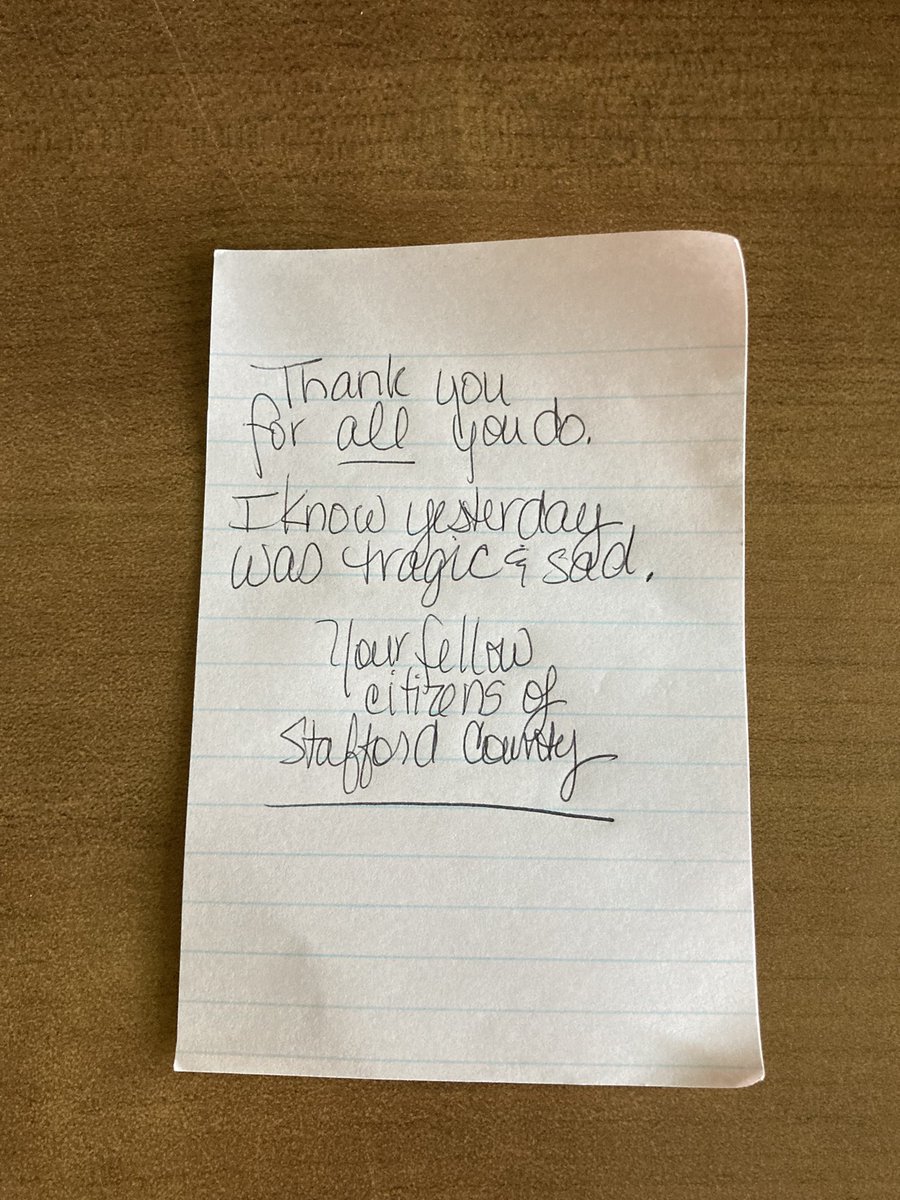 Thank you
for all you do.
I know yesterday
was tragic & sad.
Your fellow
citizens of
Stafford County